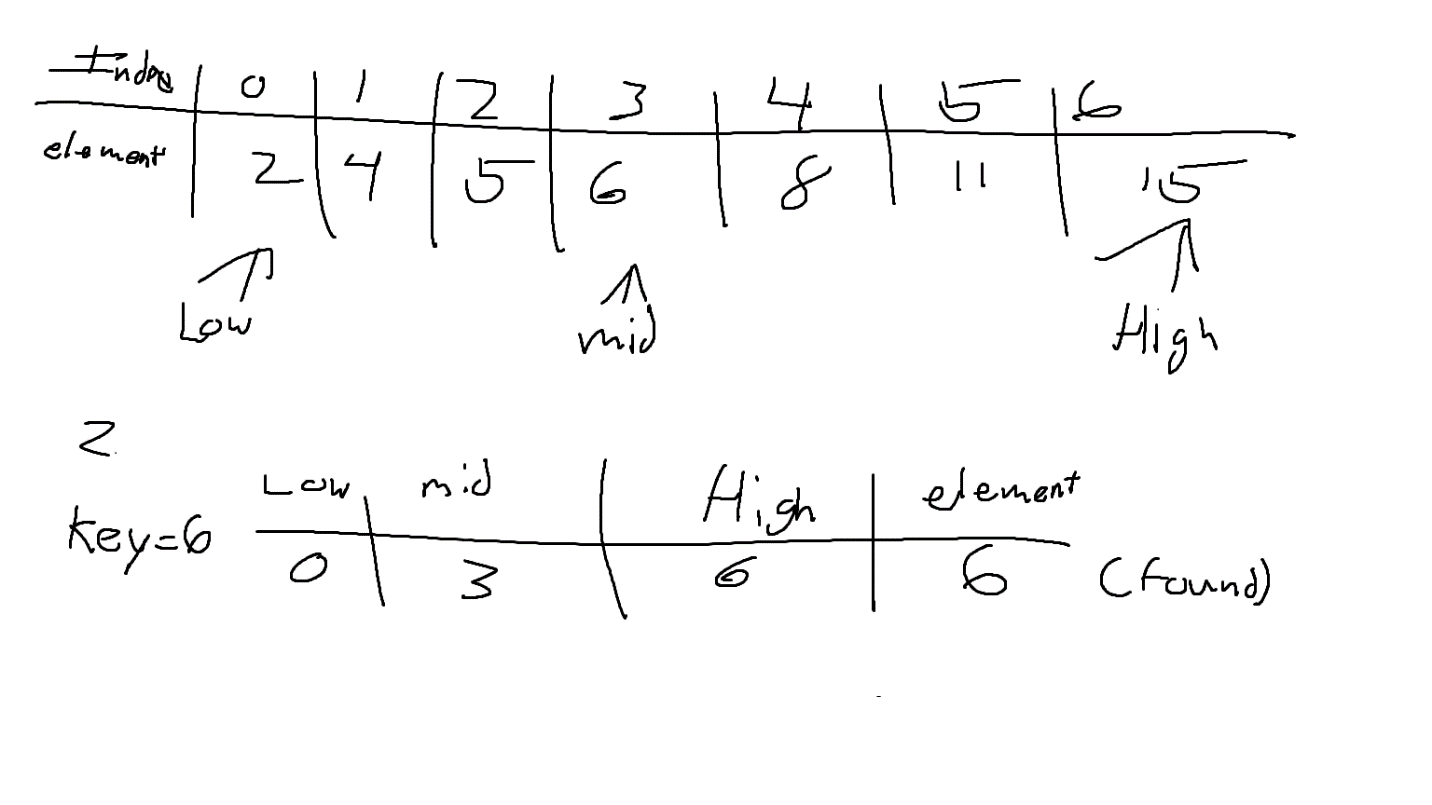 Index 0 1 2 3 4 5 6
element 2 4 5 6 8 11 15
Low mid High
2
Low mid High element
key=6 0 3 6 6 (found)